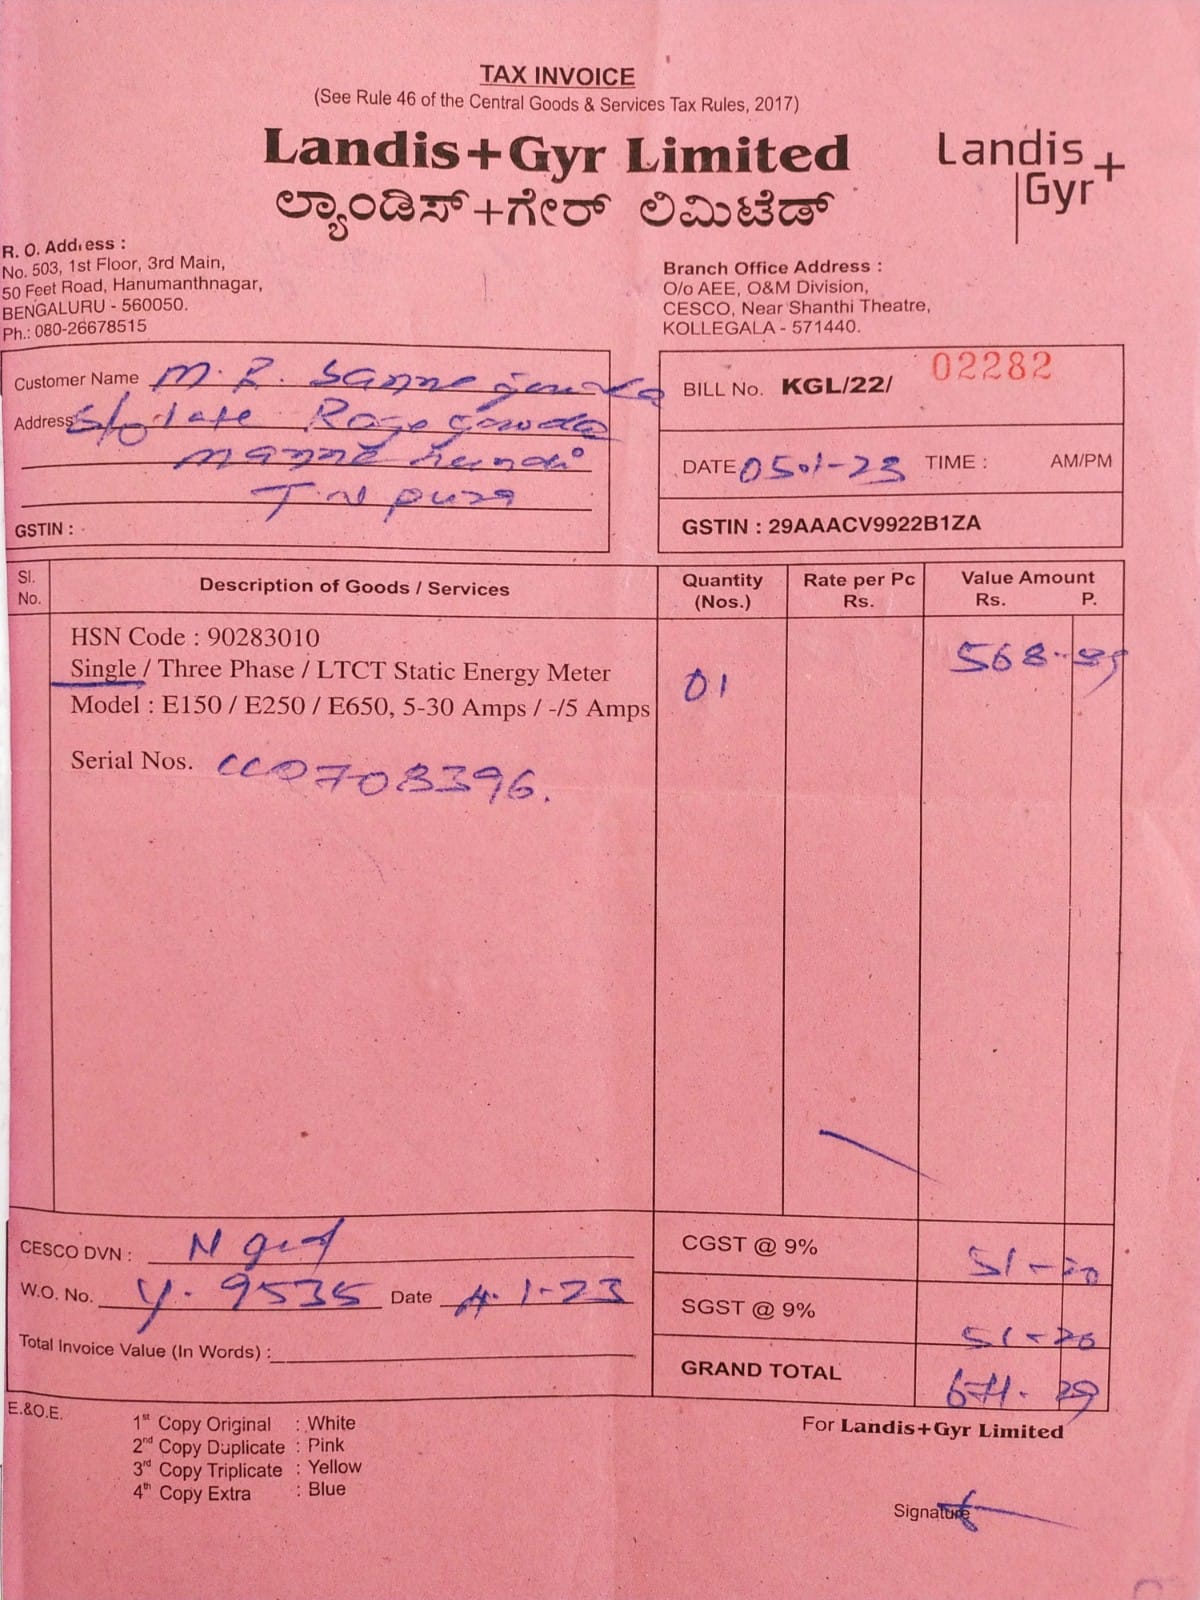 TAX INVOICE
(See Rule 46 of the Central Goods & Services Tax Rules, 2017)
Landis+Gyr Limited
ಲ್ಯಾಂಡಿಸ್+ಗೇರ್ ಲಿಮಿಟೆಡ್
Landis+
Gyr
R. O. Address :
No. 503, 1st Floor, 3rd Main,
50 Feet Road, Hanumanthnagar,
BENGALURU - 560050.
Ph.: 080-26678515
Branch Office Address :
O/o AEE, O&M Division,
CESCO, Near Shanthi Theatre,
KOLLEGALA - 571440.
Customer Name M. R. Sannegowda
Address S/o late Rage gowda
Manne hundi
T. N pura
GSTIN :
BILL No. KGL/22/ 02282
DATE 05.1-23 TIME : AM/PM
GSTIN : 29AAACV9922B1ZA
Sl. No. Description of Goods / Services Quantity (Nos.) Rate per Pc Rs. Value Amount Rs. P.
HSN Code : 90283010
Single / Three Phase / LTCT Static Energy Meter 01 568-89
Model : E150 / E250 / E650, 5-30 Amps / -/5 Amps
Serial Nos. CC0708396.
CESCO DVN :
W.O. No. 9535 Date 4.1-23
Total Invoice Value (In Words) :
CGST @ 9% 51-20
SGST @ 9% 51-20
GRAND TOTAL 671. 29
E.&O.E.
1st Copy Original : White
2nd Copy Duplicate : Pink
3rd Copy Triplicate : Yellow
4th Copy Extra : Blue
For Landis+Gyr Limited
Signature